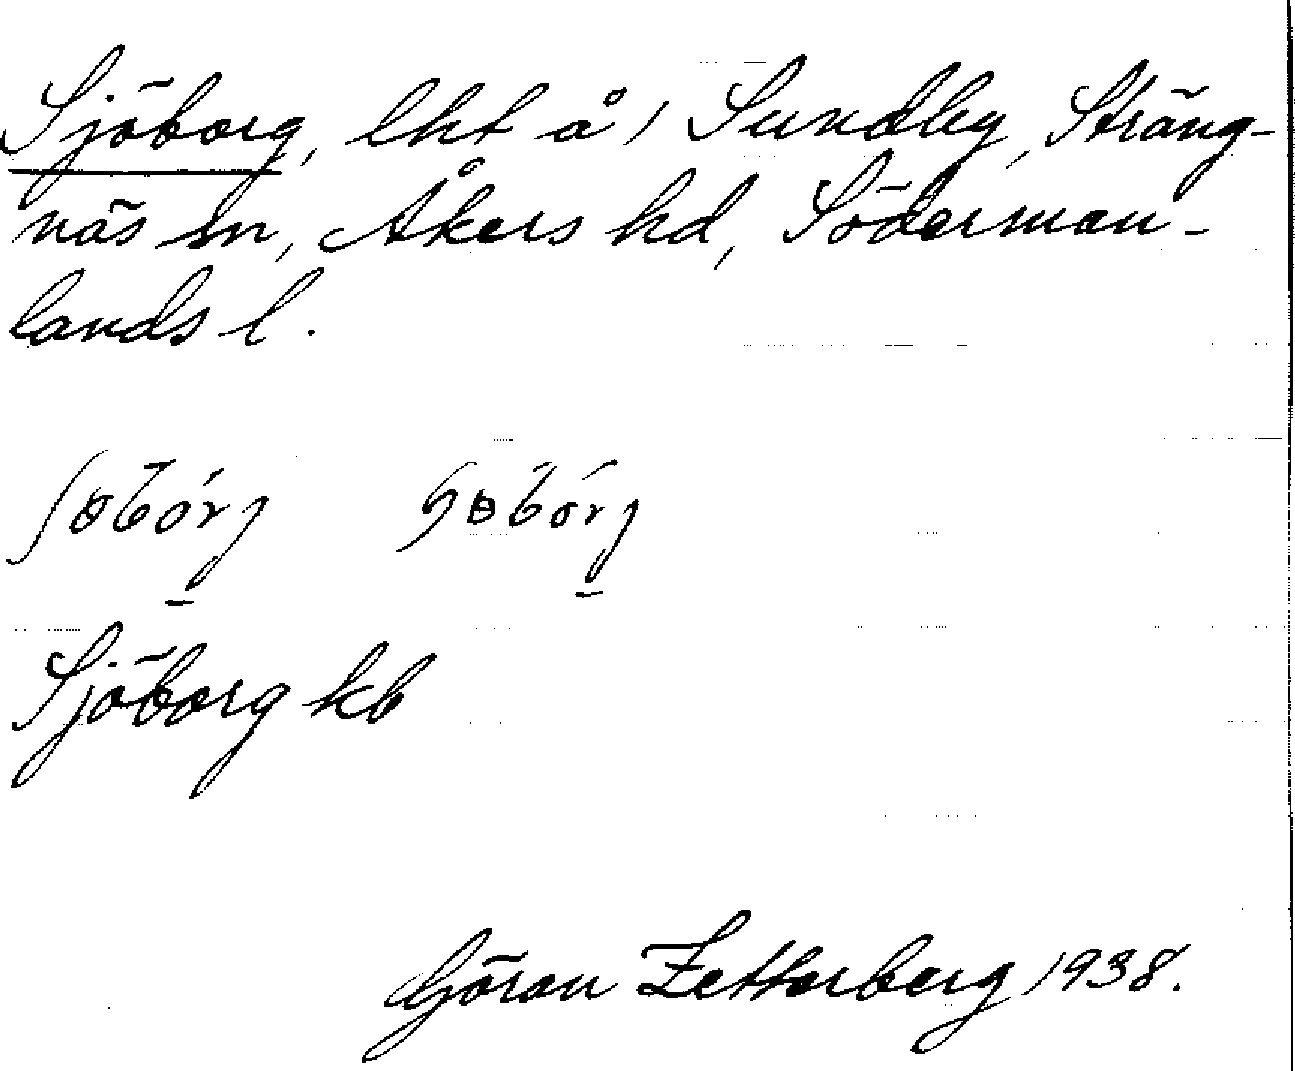 Sjöborg, lht å 1 Sundby, Sträng-
näs sn, Åkers hd, Söderman-
lands l.
Sjöborg kb
Göran Zetterberg 1938.